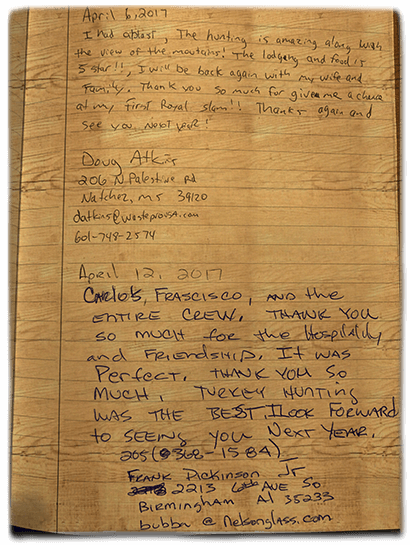 April 6, 2017
I had ablast, The hunting is amazing along with
the view of the moutains! The lodgeing and food is
5 star!!, I will be back again with my wife and
Family. Thank you so much for giveing me a chance
at my first Royal slam!! Thanks again and
see you next year!
Doug Atkins
206 N. Palestine Rd
Natchez, MS 39120
datkins@wasteprousa.com
601-748-2574
April 12, 2017
Carlos, Frascisco, and the
entire crew. Thank you
so much for the Hospitality
and Friendship. It was
Perfect. Thank you so
much, Turkey Hunting
was the best. I look forward
to seeing you next year.
205 368-1584
Frank Dickinson Jr
2213 6th Ave So
Birmingham Al 35233
bubba @ nelsonglass.com